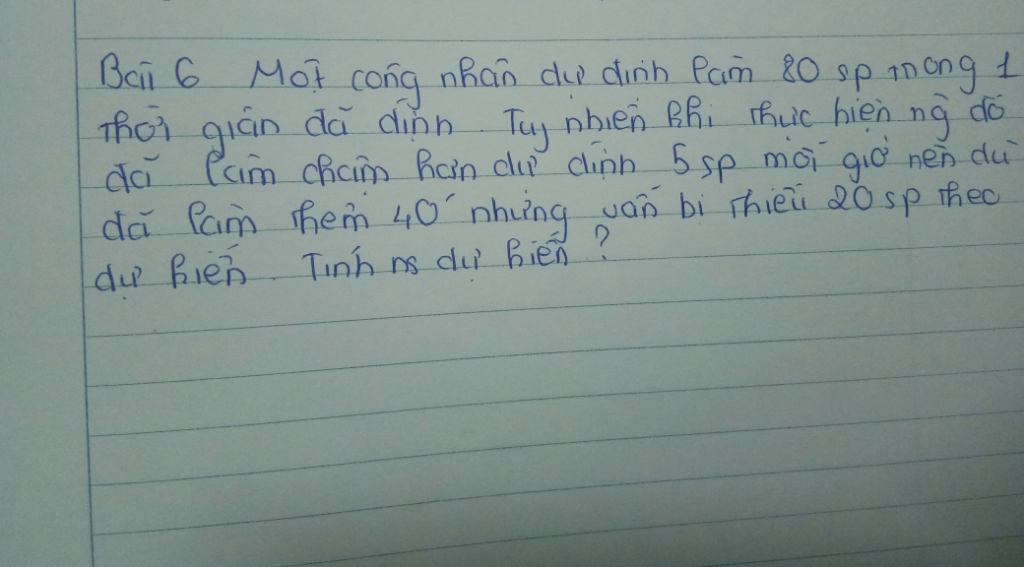 Bài 6 Một công nhân dự định làm 80 sp trong 1
thời gian đã định. Tuy nhiên khi thực hiện ng đó
đã làm chậm hơn dự định 5 sp mỗi giờ nên dù
đã làm thêm 40' nhưng vẫn bị thiếu 20 sp theo
dự kiến. Tính ns dự kiến?